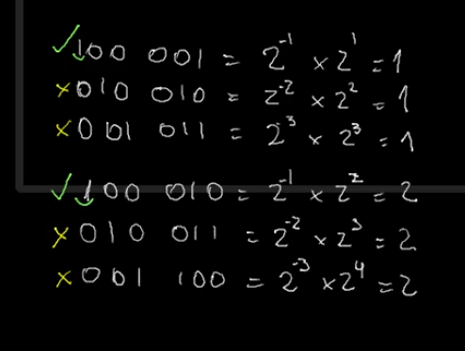 ✓100 001 = 2⁻¹ × 2¹ = 1
×010 010 = 2⁻² × 2² = 1
×001 011 = 2⁻³ × 2³ = 1
✓100 010 = 2⁻¹ × 2² = 2
×010 011 = 2⁻² × 2³ = 2
×001 100 = 2⁻³ × 2⁴ = 2